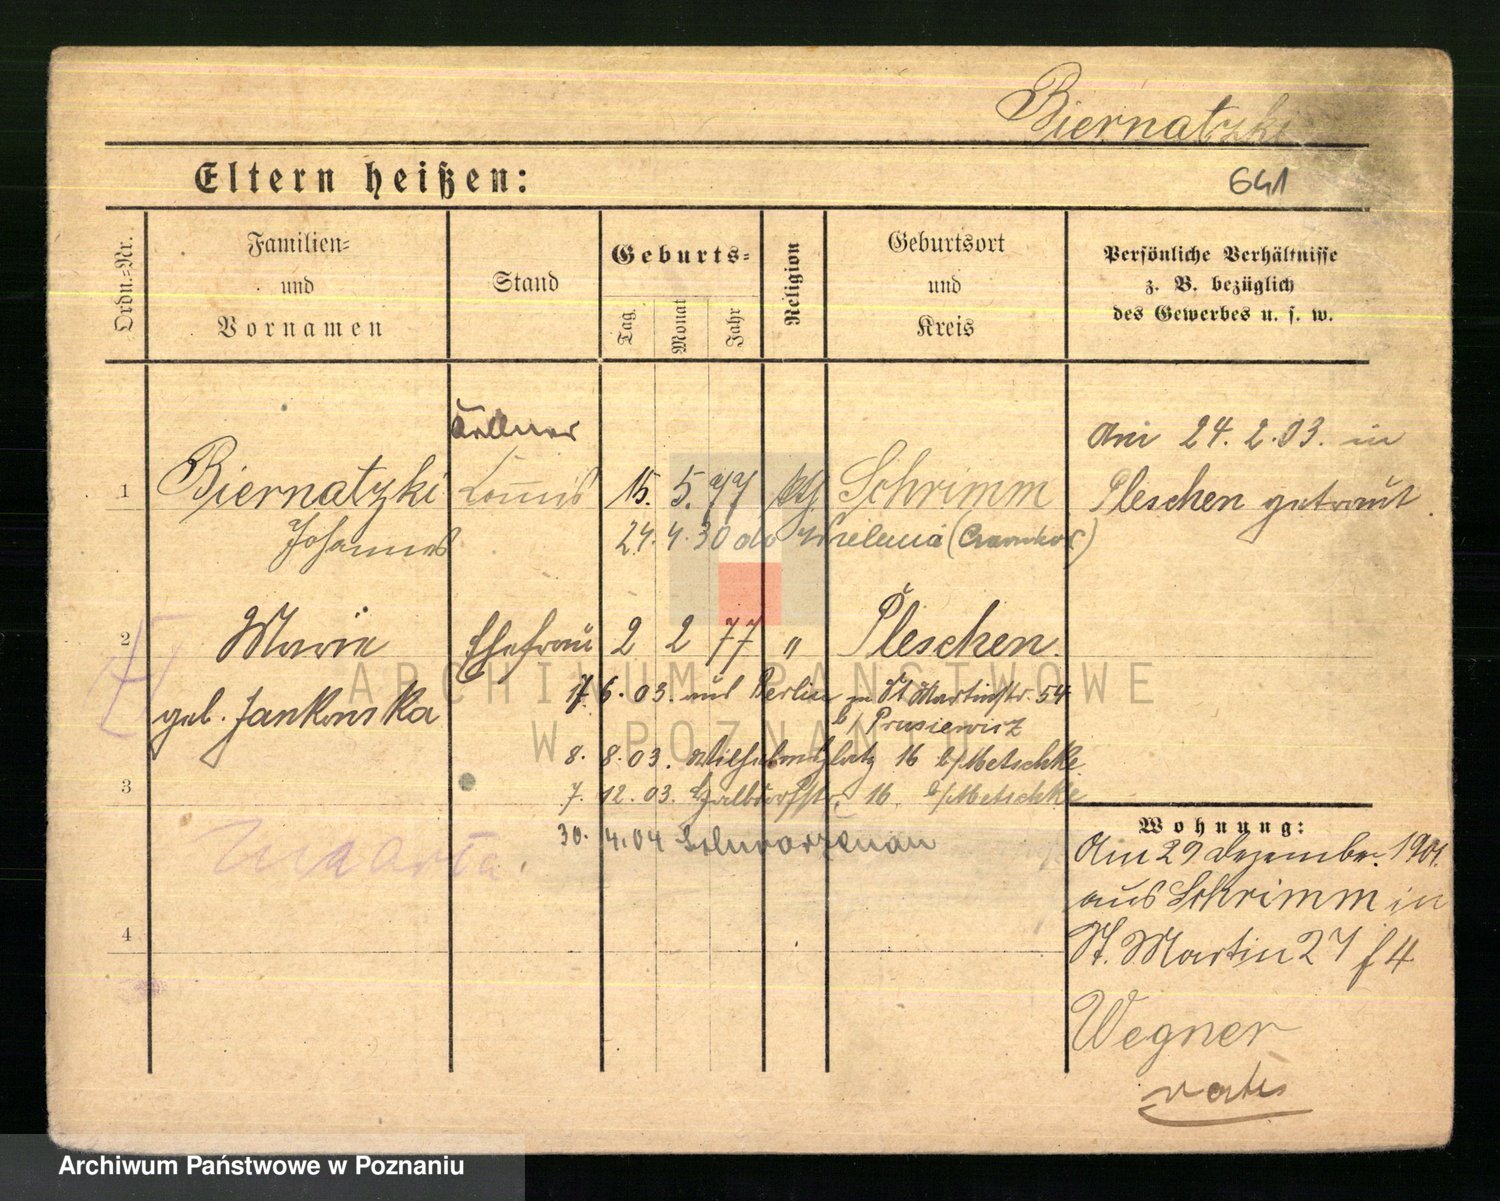 Biernatzki
Eltern heißen:
641
Ordn.=Nr.
Familien=
und
Vornamen
Stand
Geburts=
Tag.
Monat
Jahr
Religion
Geburtsort
und
Kreis
Persönliche Verhältnisse
z. B. bezüglich
des Gewerbes u. s. w.
Kellner
1 Biernatzki Commis 15. 5. 77 kth Schrimm
Johannes 24. 4. 30 do Wielen (Czarnikau)
Am 24. 2. 03. in
Pleschen getraut.
2 Marie Ehefrau 2 2 77 " Pleschen.
geb. Jankowska
17. 6. 03. aus Berlin zu St Martinstr. 54
b/ Prusiewicz
8. 8. 03. Wilhelmsplatz 16 b/ Metschke
3
7. 12. 03. 16. b/ Metschke
30. 4. 04 Schwarzenau
4
Wohnung:
Am 29 Dezember. 1901.
aus Schrimm in
St. Martin 27 f 4
Wegner
ARCHIWUM PAŃSTWOWE
W POZNANIU
Archiwum Państwowe w Poznaniu